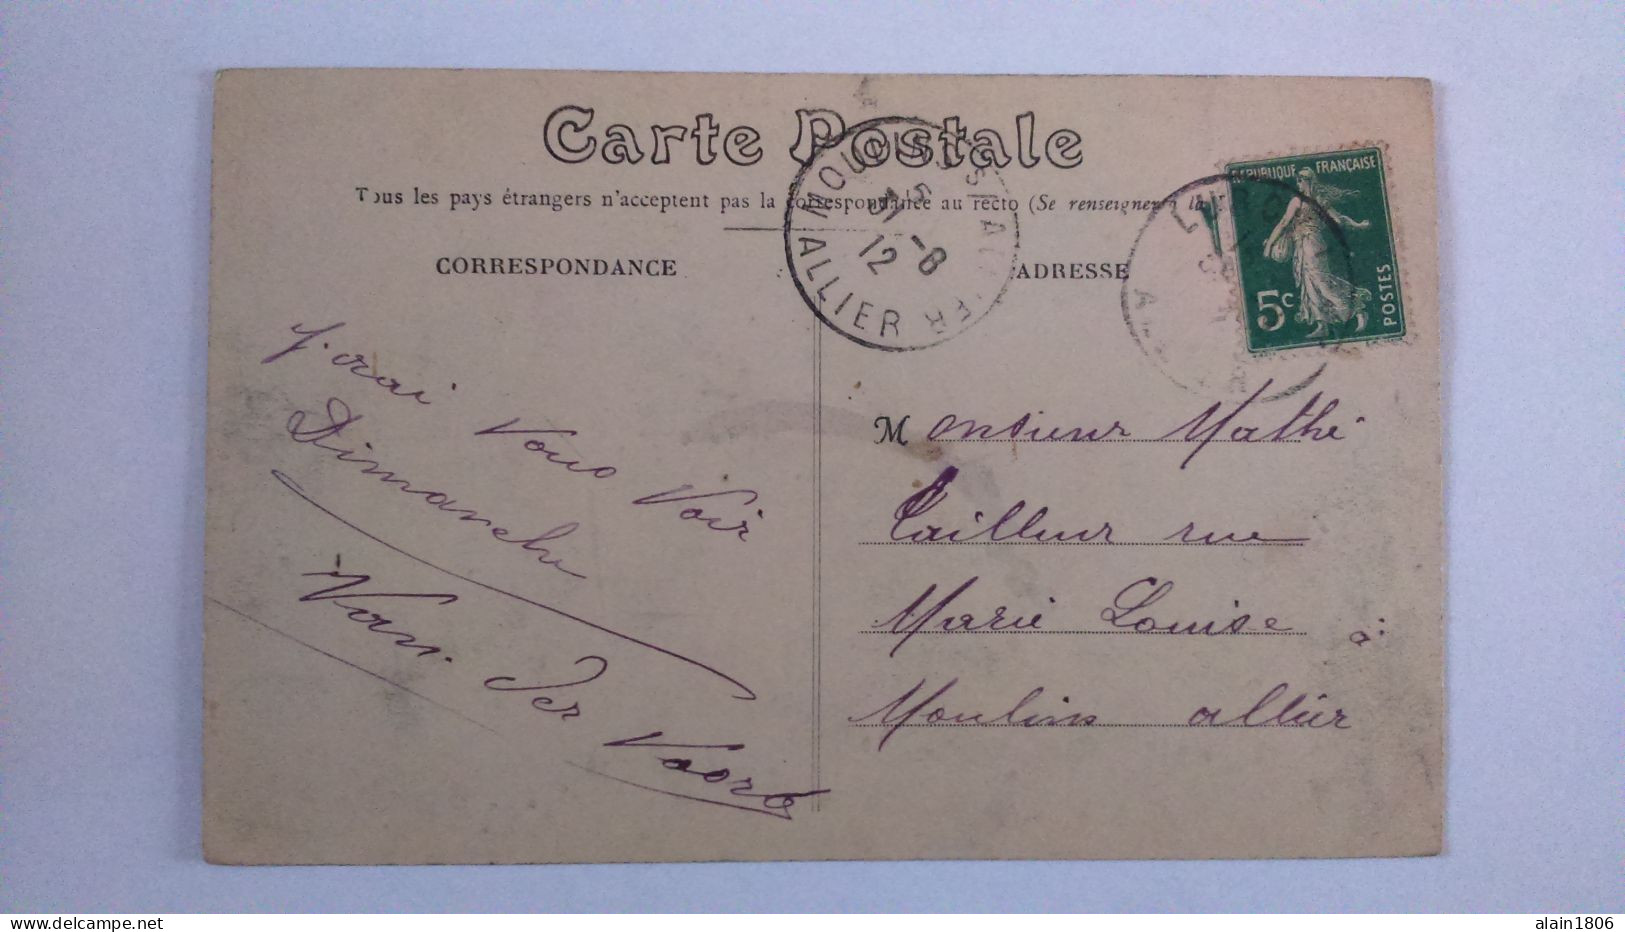 Carte Postale
Tous les pays étrangers n'acceptent pas la correspondance au recto (Se renseigner à la
CORRESPONDANCE
ADRESSE
MOULINS S/ALLIER
31 - 8
12
ALLIER
REPUBLIQUE FRANÇAISE
5c
POSTES
J'irai Vous Voir
Dimanche
Van Der
Monsieur Mathé
Tailleur rue
Marie Louise à
Moulins allier
delcampe.net
alain1806